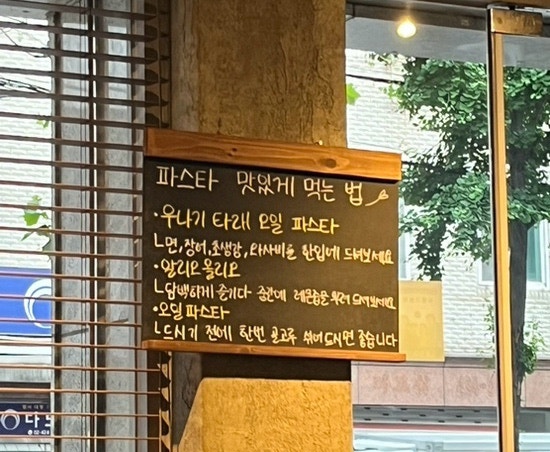 파스타 맛있게 먹는 법
·우나기 타래 오일 파스타
ㄴ면, 장어, 초생강, 와사비를 한입에 드셔보세요
·알리오올리오
ㄴ담백하게 즐기다 중간에 레몬즙을 뿌려 드셔보세요
·오일파스타
ㄴ드시기 전에 한번 골고루 섞어드시면 좋습니다
나노